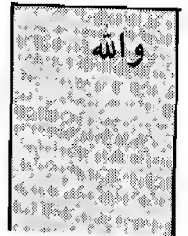 والله